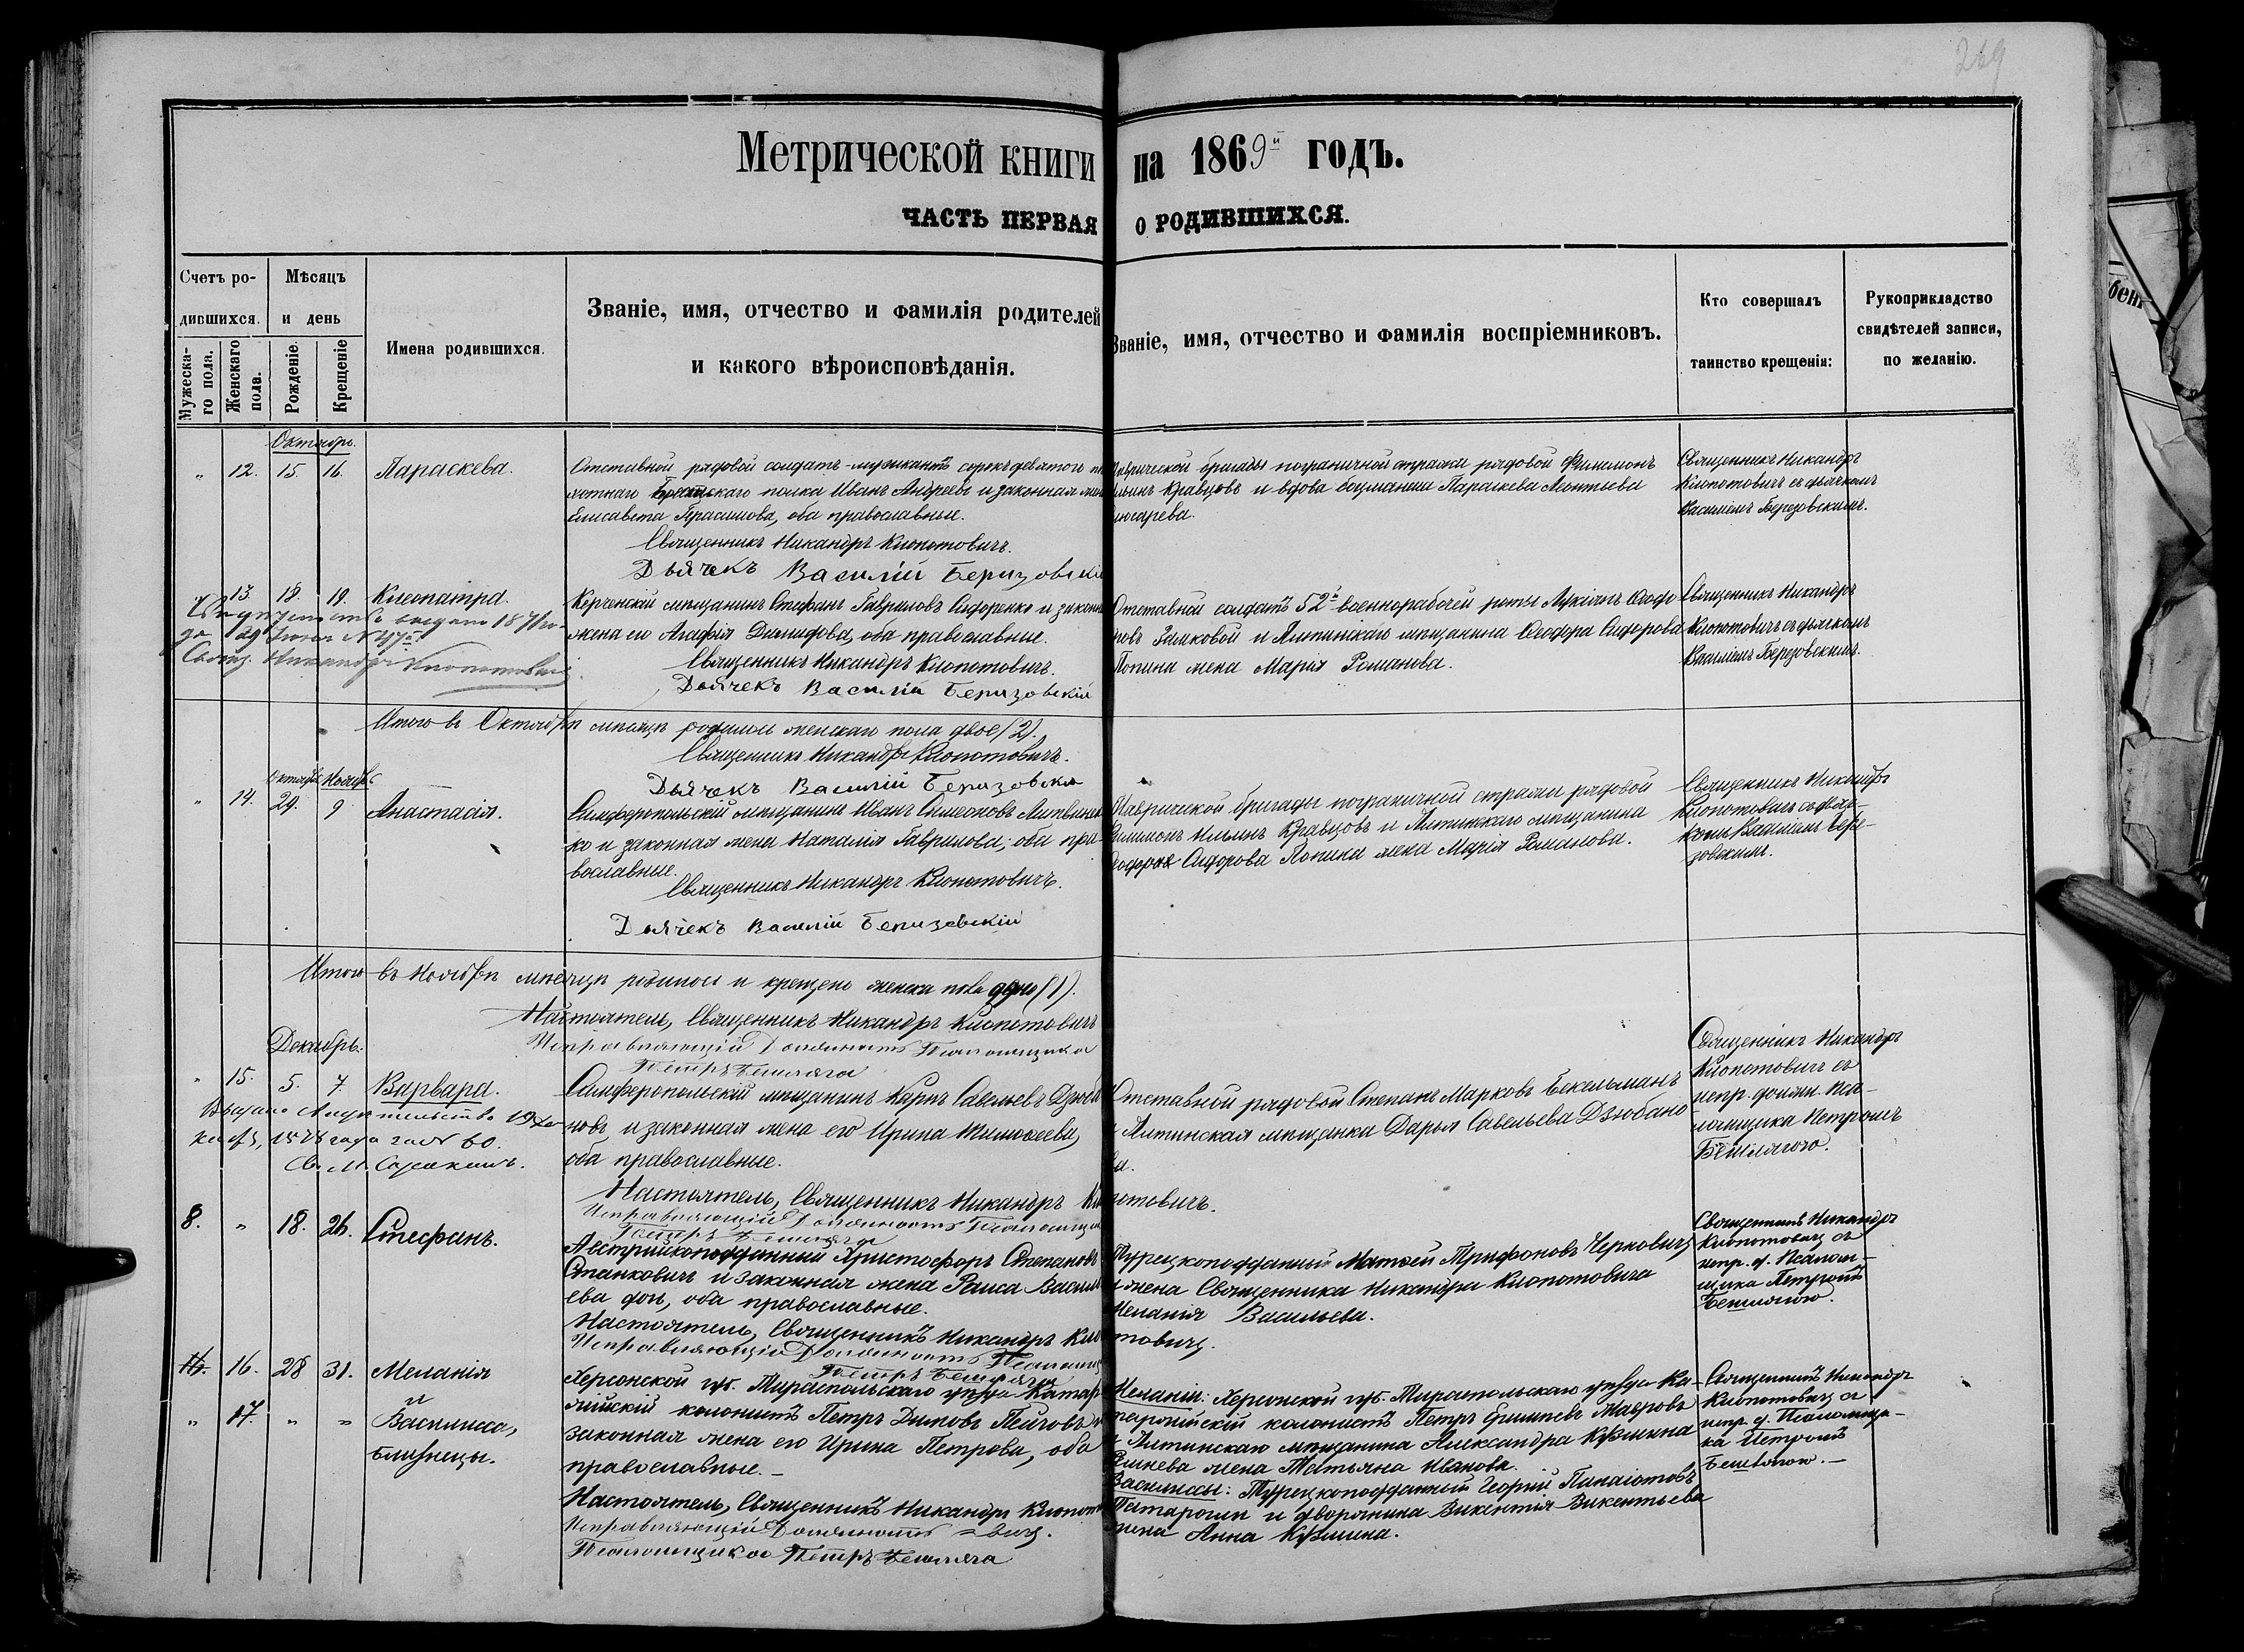 269
Метрической книги на 1869й годъ.
ЧАСТЬ ПЕРВАЯ О РОДИВШИХСЯ.
Счетъ ро-
дившихся.
Мужеска-
го пола.
Женскаго
пола.
Мѣсяцъ
и день
Рожденіе.
Крещеніе
Имена родившихся.
Званіе, имя, отчество и фамилія родителей
и какого вѣроисповѣданія.
Званіе, имя, отчество и фамилія воспріемниковъ.
Кто совершалъ
таинство крещенія:
Рукоприкладство
свидѣтелей записи,
по желанію.
Октябрь.
" 12. 15. 16. Параскева.
Отставной рядовой солдатъ-музыкантъ сорокъ девятого
пѣхотнаго Брестскаго полка Иванъ Андреевъ и законная
Елисавета Герасимова, оба православные.
Священникъ Никандръ Клопотовичъ.
Дьячекъ Василій Березовскій
Таврической бригады пограничной стражи рядовой Филимонъ
Ильинъ Кравцовъ и вдова боцманша Параскева Монтьева
Слюсарева.
Священникъ Никандръ
Клопотовичъ съ дьячкомъ
Василіемъ Березовскимъ.
" 13. 18. 19. Клеопатра.
Свидѣтельство выдано 1871 го-
да 29 Іюня № 475.
Свящ. Никандръ Клопотовичъ
Керченскій мѣщанинъ Стефанъ Гавриловъ Сидоренко и законн
жена его Агафія Демидова, оба православные.
Священникъ Никандръ Клопотовичъ.
Дьячекъ Василій Березовскій
Отставной солдатъ 52й военнорабочей роты Лукіанъ Ѳеодо-
ровъ Замковой и Ялтинскаго мѣщанина Ѳеодора Сидорова
Попина жена Марія Романова.
Священникъ Никандръ
Клопотовичъ съ дьячкомъ
Василіемъ Березовскимъ.
Итого въ Октябрѣ мѣсяцѣ родилось женскаго пола двое (2).
Священникъ Никандръ Клопотовичъ.
Дьячекъ Василій Березовскій
Октябрь Ноябрь
" 14. 29. 9 Анастасія.
Симферопольскій мѣщанинъ Иванъ Симеоновъ Литвинен
ко и законная жена Наталія Гаврилова; оба пра-
вославные.
Священникъ Никандръ Клопотовичъ.
Дьячекъ Василій Березовскій
Таврической бригады пограничной стражи рядовой
Филимонъ Ильинъ Кравцовъ и Ялтинскаго мѣщанина
Ѳеодора Сидорова Попина жена Марія Романова.
Священникъ Никандръ
Клопотовичъ съ дьяч-
комъ Василіемъ Бере-
зовскимъ.
Итого въ Ноябрѣ мѣсяцѣ родилось и крещено женска пола одно (1).
Настоятель, Священникъ Никандръ Клопотовичъ
Исправляющій Должность Псаломщика
Петръ Бешляга
Декабрь.
" 15. 5. 7. Варвара.
Выдано Свидѣтельство
1878 года за № 60.
Св. М. Сорокинъ.
Симферопольскій мѣщанинъ Карпъ Савельевъ Дзюба
новъ, и законная жена его Ирина Тимоѳеева,
оба православные.
Настоятель, Священникъ Никандръ Клопотовичъ.
Исправляющій Должность Псаломщика
Петръ Бешляга
Отставной рядовой Степанъ Марковъ Бекельманъ
и Ялтинская мѣщанка Дарья Савельева Дзюбано
ва.
Священникъ Никандръ
Клопотовичъ съ
испр. должн. Пса-
ломщика Петромъ
Бешлягою.
8. " 18. 26. Стефанъ.
Австрійскоподданный Христофоръ Степановъ
Станковичъ и законная жена Раиса Василь
ева дочь, оба православные.
Настоятель, Священникъ Никандръ Клопотовичъ.
Исправляющій Должность Псаломщ
Петръ Бешляга
Турецкоподданный Матѳей Трифоновъ Черковичъ
и жена Священника Никандра Клопотовича
Меланія Васильева.
Священникъ Никандръ
Клопотовичъ съ
испр. д. Псалом-
щика Петромъ
Бешлягою.
16. 16. 28 31. Меланія
и
" 17. " " Василисса,
близнецы.
Херсонской губ. Тираспольскаго уѣзда Катар-
жійскій колонистъ Петръ Димовъ Пейчовъ и
законная жена его Ирина Петрова, оба
православные.-
Настоятель, Священникъ Никандръ Клопот
Исправляющій Должность =вичъ.
Псаломщика Петръ Бешляга
Меланіи: Херсонской губ. Тираспольскаго уѣзда Ка-
таржійскій колонистъ Петръ Мавровъ
и Ялтинскаго мѣщанина Александра Кузмина
жена Татьяна Иванова.
Василиссы: Турецкоподданный Георгій Панаіотовъ
и дворянина Викентія Викентьева
жена Анна Кузмина.
Священникъ Никандръ
Клопотовичъ съ
испр. д. Псаломщи-
ка Петромъ
Бешлягою.-